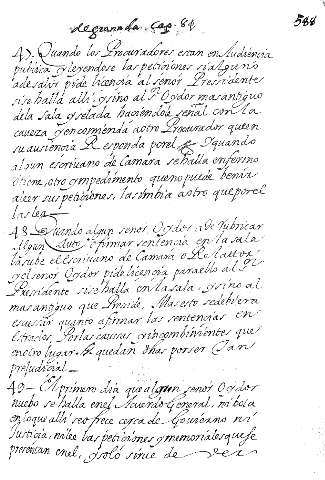 de granada. Cap. 81
588
47. Quando los Procuradores estan en Audiencia
publica y leyendose las peticiones si alguno
a de salir pide licencia al señor Pressidente
si se halla alli, y sino al Sr. Oydor mas antiguo
de la sala y se la da haciendole señal con la
caueza y encomienda a otro Procurador que en
su ausiencia Responda por el y quando
algun escriuano de Camara se halla enfermo
o tiene otro ympedimento que no puede benir
a leer sus peticiones, las imbia a otro que por el
las lea
48. Quando algun señor Oydor a de Rubricar
algun auto, o firmar sentencia en la sala
la sube el escriuano de Camara o Relattor
y el señor Oydor pide licencia para ello al Sr.
Presidente si se halla en la sala y sino al
mas antiguo que Preside, Mas esto se debiera
escusar quanto a firmar las sentencias en
estrados por las causas e inconbinientes que
en otro lugar quedan dhas por ser tan
prejudicial
49. El primero dia que algun señor Oydor
nuebo se halla en el Acuerdo General, ni bota
en lo que alli se ofrece cerca de Gouierno ni
Justicia, ni lee las peticiones y memoriales que se
presentan en el, y solo sirue de ver